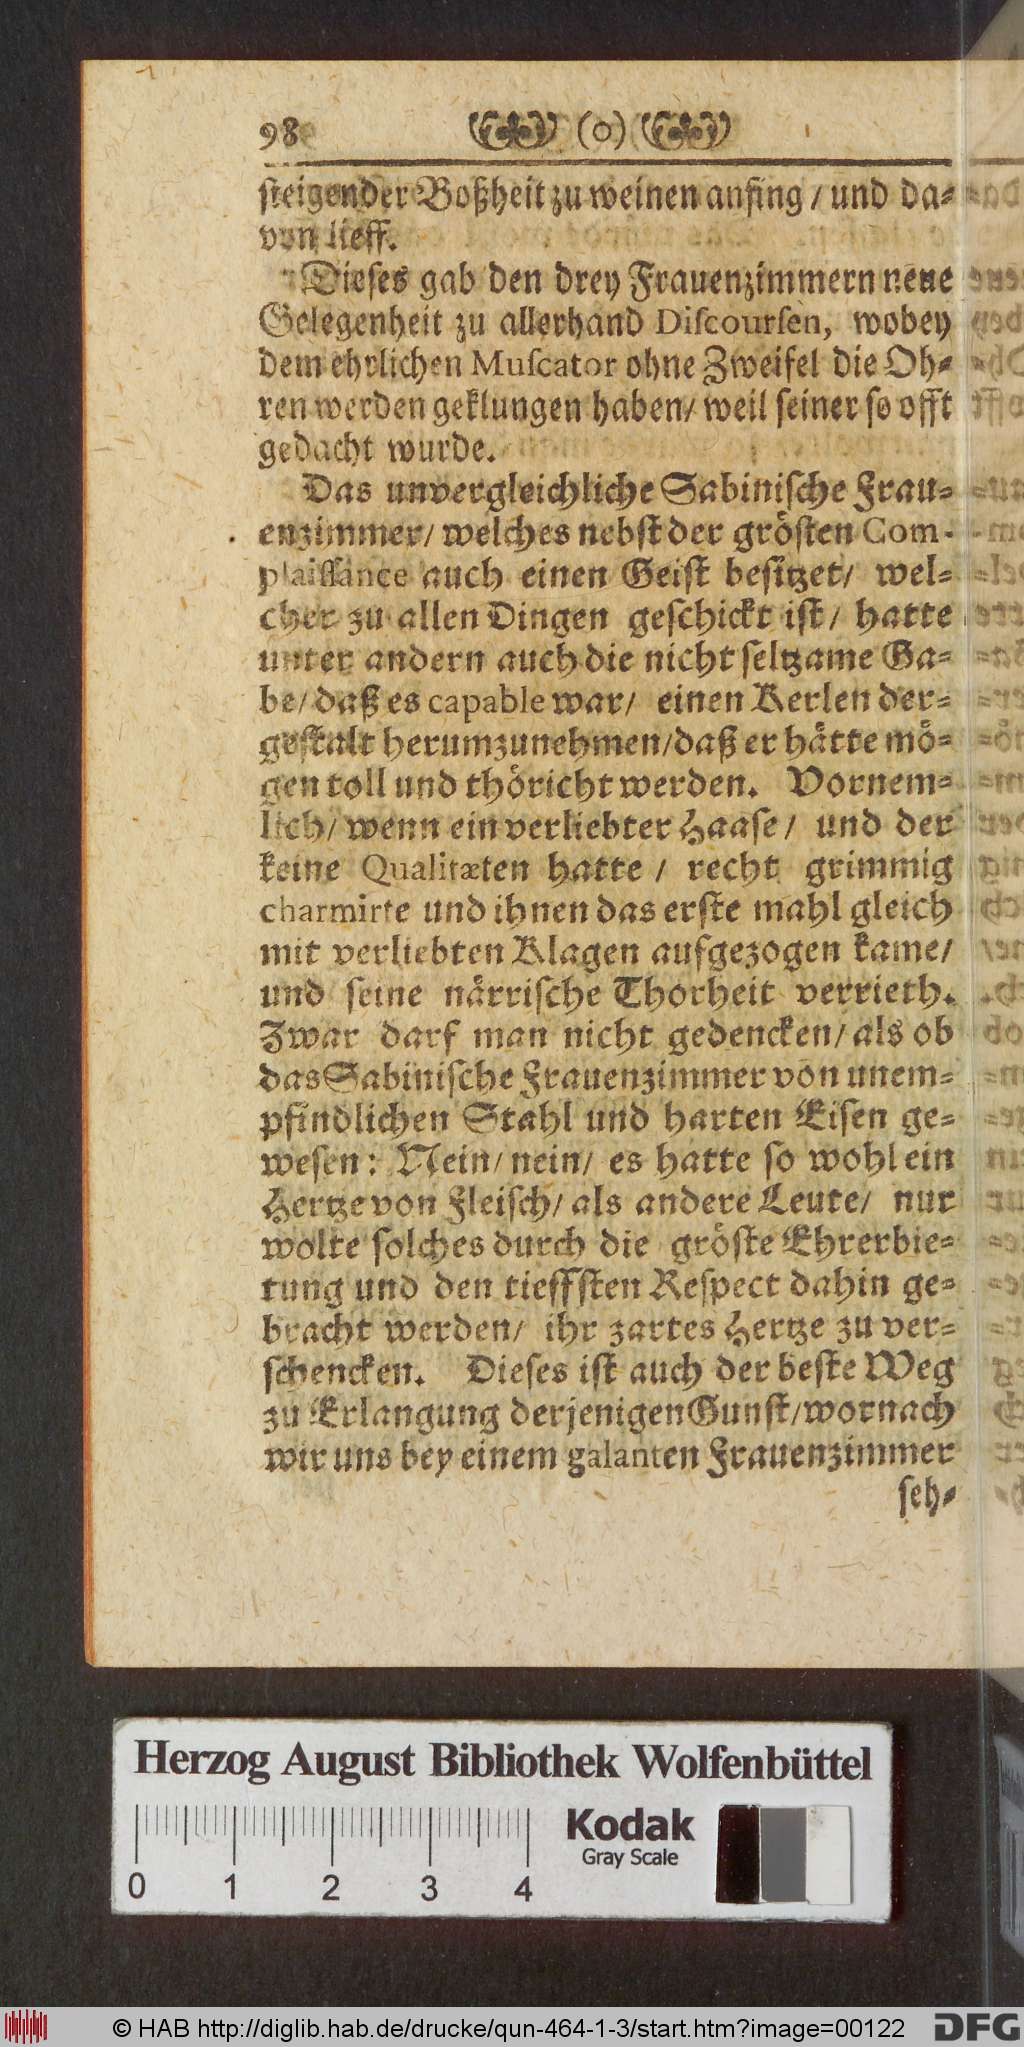 98 (o)
steigender Boßheit zu weinen anfing / und da-
von lieff.
Dieses gab den drey Frauenzimmern neue
Gelegenheit zu allerhand Discoursen, wobey
dem ehrlichen Muscator ohne Zweifel die Oh-
ren werden geklungen haben/ weil seiner so offt
gedacht wurde.
Das unvergleichliche Sabinische Frau-
enzimmer/ welches nebst der grösten Com-
plaissance auch einen Geist besitzet/ wel-
cher zu allen Dingen geschickt ist/ hatte
unter andern auch die nicht seltzame Ga-
be/ daß es capable war/ einen Kerlen der-
gestalt herumzunehmen/ daß er hätte mö-
gen toll und thöricht werden. Vornem-
lich/ wenn ein verliebter Haase/ und der
keine Qualitæten hatte / recht grimmig
charmirte und ihnen das erste mahl gleich
mit verliebten Klagen aufgezogen kame/
und seine närrische Thorheit verrieth.
Zwar darf man nicht gedencken/ als ob
das Sabinische Frauenzimmer von unem-
pfindlichen Stahl und harten Eisen ge-
wesen: Nein/ nein/ es hatte so wohl ein
Hertze von Fleisch/ als andere Leute/ nur
wolte solches durch die gröste Ehrerbie-
tung und den tieffsten Respect dahin ge-
bracht werden/ ihr zartes Hertze zu ver-
schencken. Dieses ist auch der beste Weg
zu Erlangung derjenigen Gunst/ wornach
wir uns bey einem galanten Frauenzimmer
seh-
Herzog August Bibliothek Wolfenbüttel
Kodak
Gray Scale
0 1 2 3 4
© HAB http://diglib.hab.de/drucke/qun-464-1-3/start.htm?image=00122
DFG